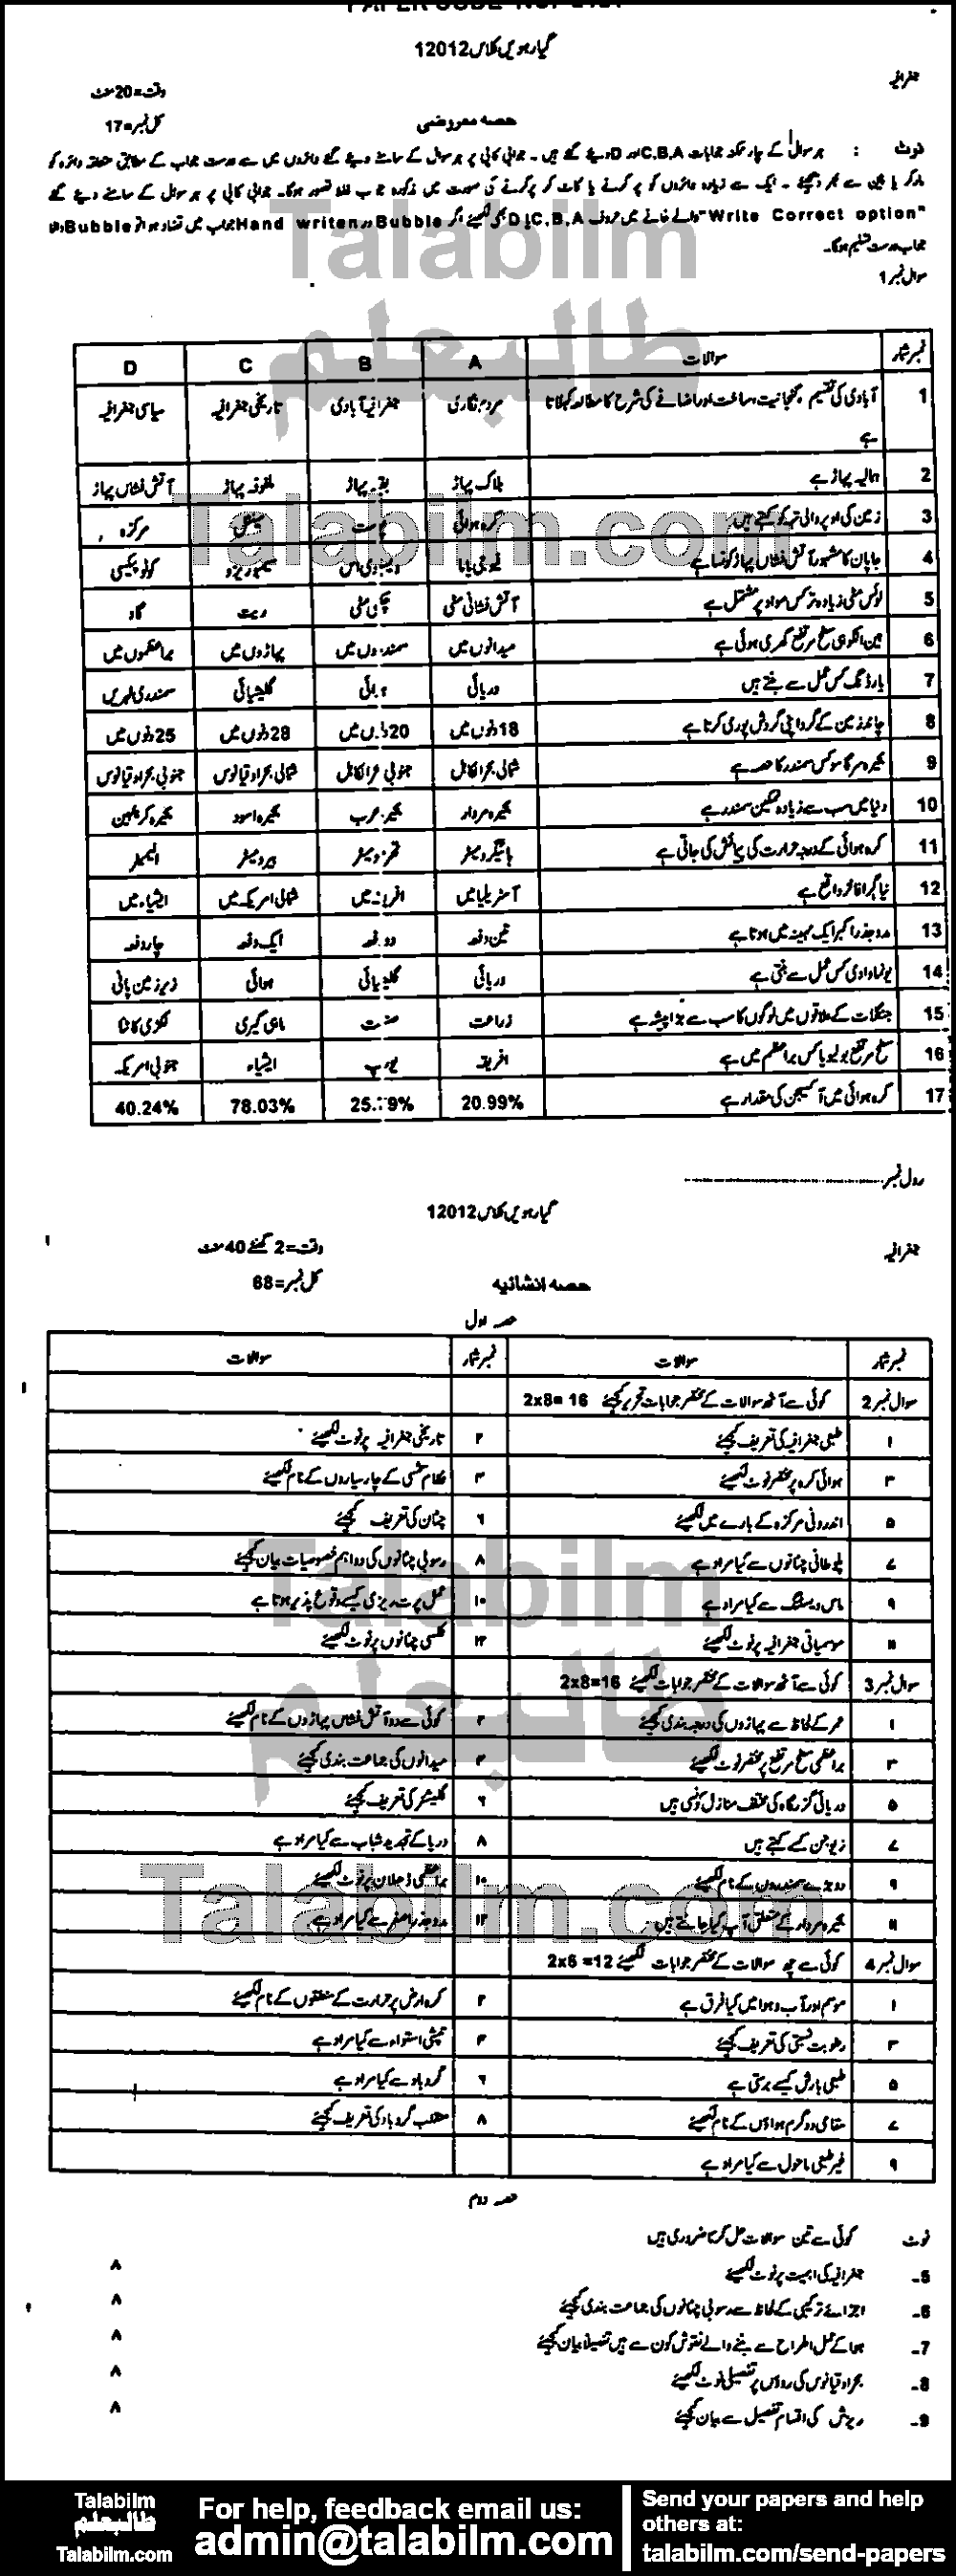 PAPER CODE NO.
گیارہویں کلاس 12012
جغرافیہ
وقت=20 منٹ
حصہ معروضی
کل نمبر=17
نوٹ : ہر سوال کے چار ممکنہ جوابات C,B,A اور D دیئے گئے ہیں۔ جوابی کاپی پر ہر سوال کے سامنے دیئے گئے دائروں میں سے درست جواب کے مطابق متعلقہ دائرہ کو
مارکر یا پین سے بھر دیجئے۔ ایک سے زیادہ دائروں کو پر کرنے یا کاٹ کر پر کرنے کی صورت میں مذکورہ جواب غلط تصور ہوگا۔ جوابی کاپی پر ہر سوال کے سامنے دیئے گئے
"Write Correct option" والے خانے میں حروف C,B,A یا D بھی لکھیئے اگر Bubble اور Hand writen جواب میں تضاد ہوا تو Bubble والا
جواب درست تسلیم ہوگا۔
سوال نمبر 1
نمبر شمار سوالات A B C D
1 آبادی کی تقسیم، گنجانیت، ساخت اور اضافے کی شرح کا مطالعہ کہلاتا ہے مردم نگاری جغرافیہ آبادی تاریخی جغرافیہ سیاسی جغرافیہ
2 ہمالیہ پہاڑ ہے بلاک پہاڑ بقیہ پہاڑ ملفوفہ پہاڑ آتش فشاں پہاڑ
3 زمین کی اوپر والی تہہ کو کہتے ہیں کرہ ہوائی پوست مینٹل مرکزہ
4 جاپان کا مشہور آتش فشاں پہاڑ کونسا ہے فیوجی یاما کوٹوپیکسی
5 لوئس مٹی زیادہ تر کس مواد پر مشتمل ہے آتش فشانی مٹی چکنی مٹی ریت گاد
6 بین الکوہی سطح مرتفع گھری ہوئی ہے میدانوں میں سمندروں میں پہاڑوں میں براعظموں میں
7 یارڈنگ کس عمل سے بنتے ہیں دریائی ہوائی گلیشیائی سمندری لہریں
8 چاند زمین کے گرد اپنی گردش پوری کرتا ہے 18 دنوں میں 20 دنوں میں 28 دنوں میں 25 دنوں میں
9 بحیرہ سرگاسو کس سمندر کا حصہ ہے شمالی بحرالکاہل جنوبی بحرالکاہل شمالی بحراوقیانوس جنوبی بحراوقیانوس
10 دنیا میں سب سے زیادہ نمکین سمندر ہے بحیرہ مردار بحیرہ عرب بحیرہ اسود بحیرہ کریبین
11 کرہ ہوائی کے درجہ حرارت کی پیمائش کی جاتی ہے ہائیگرومیٹر تھرمومیٹر بیرومیٹر
12 نیاگرا فالز واقع ہے آسٹریلیا میں افریقہ میں شمالی امریکہ میں ایشیاء میں
13 مدوجذر اکبر ایک مہینہ میں ہوتا ہے تین دفعہ دو دفعہ ایک دفعہ چار دفعہ
14 یونما وادی کس عمل سے بنتی ہے دریائی گلیشیائی ہوائی زیر زمین پانی
15 جنگلات کے علاقوں میں لوگوں کا سب سے بڑا پیشہ ہے زراعت صنعت ماہی گیری لکڑی کاٹنا
16 سطح مرتفع بولیویا کس براعظم میں ہے افریقہ یورپ ایشیاء جنوبی امریکہ
17 کرہ ہوائی میں آکسیجن کی مقدار ہے 20.99% 78.03% 40.24%
رول نمبر
گیارہویں کلاس 12012
جغرافیہ
وقت=2 گھنٹے 40 منٹ
حصہ انشائیہ
کل نمبر=68
حصہ اول
نمبر شمار سوالات نمبر شمار سوالات
سوال نمبر 2 کوئی سے آٹھ سوالات کے مختصر جوابات تحریر کیجئے 2x8= 16
۱ طبعی جغرافیہ کی تعریف کیجئے ۲ تاریخی جغرافیہ پر نوٹ لکھیئے
۳ ہوائی کرہ پر مختصر نوٹ لکھیئے ۴ نظام شمسی کے چار سیاروں کے نام لکھیئے
۵ اندرونی مرکزہ کے بارے میں لکھیئے ۶ چٹان کی تعریف کیجئے
۷ پلوطانی چٹانوں سے کیا مراد ہے ۸ رسوبی چٹانوں کی دو اہم خصوصیات بیان کیجئے
۹ ماس ویسٹنگ سے کیا مراد ہے ۱۰ عمل پرت ریزی کیسے وقوع پذیر ہوتا ہے
۱۱ موسمیاتی جغرافیہ پر نوٹ لکھیئے ۱۲ کلسی چٹانوں پر نوٹ لکھیئے
سوال نمبر 3 کوئی سے آٹھ سوالات کے مختصر جوابات لکھیئے 2x8=16
۱ عمر کے لحاظ سے پہاڑوں کی درجہ بندی کیجئے ۲ کوئی سے دو آتش فشاں پہاڑوں کے نام لکھیئے
۳ براعظمی سطح مرتفع پر مختصر نوٹ لکھیئے ۴ میدانوں کی جماعت بندی کیجئے
۵ دریائی گزرگاہ کی مختلف منازل کونسی ہیں ۶ گلیشئر کی تعریف کیجئے
۷ زیوجن کسے کہتے ہیں ۸ دریا کے تجدید شباب سے کیا مراد ہے
۹ دو بڑے سمندروں کے نام لکھیئے ۱۰ براعظمی ڈھلان پر نوٹ لکھیئے
۱۱ بحیرہ مردار کے متعلق آپ کیا جانتے ہیں ۱۲ مدوجذر اصغر سے کیا مراد ہے
سوال نمبر 4 کوئی سے چھ سوالات کے مختصر جوابات لکھیئے 2x6 =12
۱ موسم اور آب و ہوا میں کیا فرق ہے ۲ کرہ ارض پر حرارت کے منطقوں کے نام لکھیئے
۳ رطوبت نسبتی کی تعریف کیجئے ۴ تپشی استواء سے کیا مراد ہے
۵ طبعی بارش کیسے برستی ہے ۶ گردباد سے کیا مراد ہے
۷ مقامی دو گرم ہواؤں کے نام لکھیئے ۸ منقلب گردباد کی تعریف کیجئے
۹ غیر طبعی ماحول سے کیا مراد ہے
حصہ دوم
نوٹ کوئی سے تین سوالات حل کرنا ضروری ہیں
5- جغرافیہ کی اہمیت پر نوٹ لکھیئے ۸
6- اجزائے ترکیبی کے لحاظ سے رسوبی چٹانوں کی جماعت بندی کیجئے ۸
7- ہوا کے عمل اطراح سے بننے والے نقوش کون سے ہیں تفصیلاً بیان کیجئے ۸
8- بحراوقیانوس کی روؤں پر تفصیلی نوٹ لکھیئے ۸
9- ریزش کی اقسام تفصیل سے بیان کیجئے ۸
Talabilm
طالبعلم
Talabilm.com
Talabilm
طالبعلم
Talabilm.com
Talabilm
طالبعلم
Talabilm.com
For help, feedback email us:
admin@talabilm.com
Send your papers and help
others at:
talabilm.com/send-papers